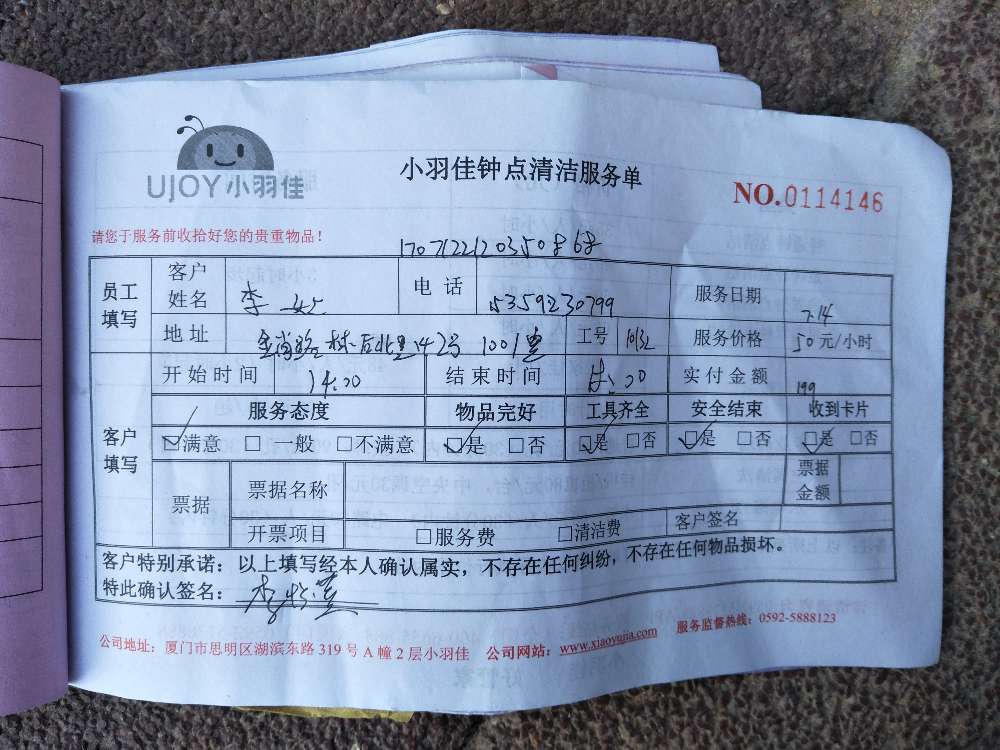 UJOY小羽佳
小羽佳钟点清洁服务单
NO.0114146
请您于服务前收拾好您的贵重物品！
员工填写 客户姓名 李 电话 15359230799 服务日期 7.14
地址 林后北里42号1001 工号 服务价格 50元/小时
开始时间 14:00 结束时间 :00 实付金额 199
客户填写 服务态度 物品完好 工具齐全 安全结束 收到卡片
☑满意 □一般 □不满意 ☑是 □否 ☑是 □否 ☑是 □否 ☑是 □否
票据 票据名称 票据金额
开票项目 □服务费 □清洁费 客户签名
客户特别承诺：以上填写经本人确认属实，不存在任何纠纷，不存在任何物品损坏。
特此确认签名：李
公司地址：厦门市思明区湖滨东路319号A幢2层小羽佳 公司网站：www.xiaoyujia.com 服务监督热线：0592-5888123